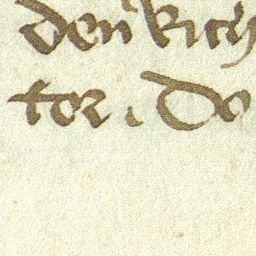 den kich
tor. do